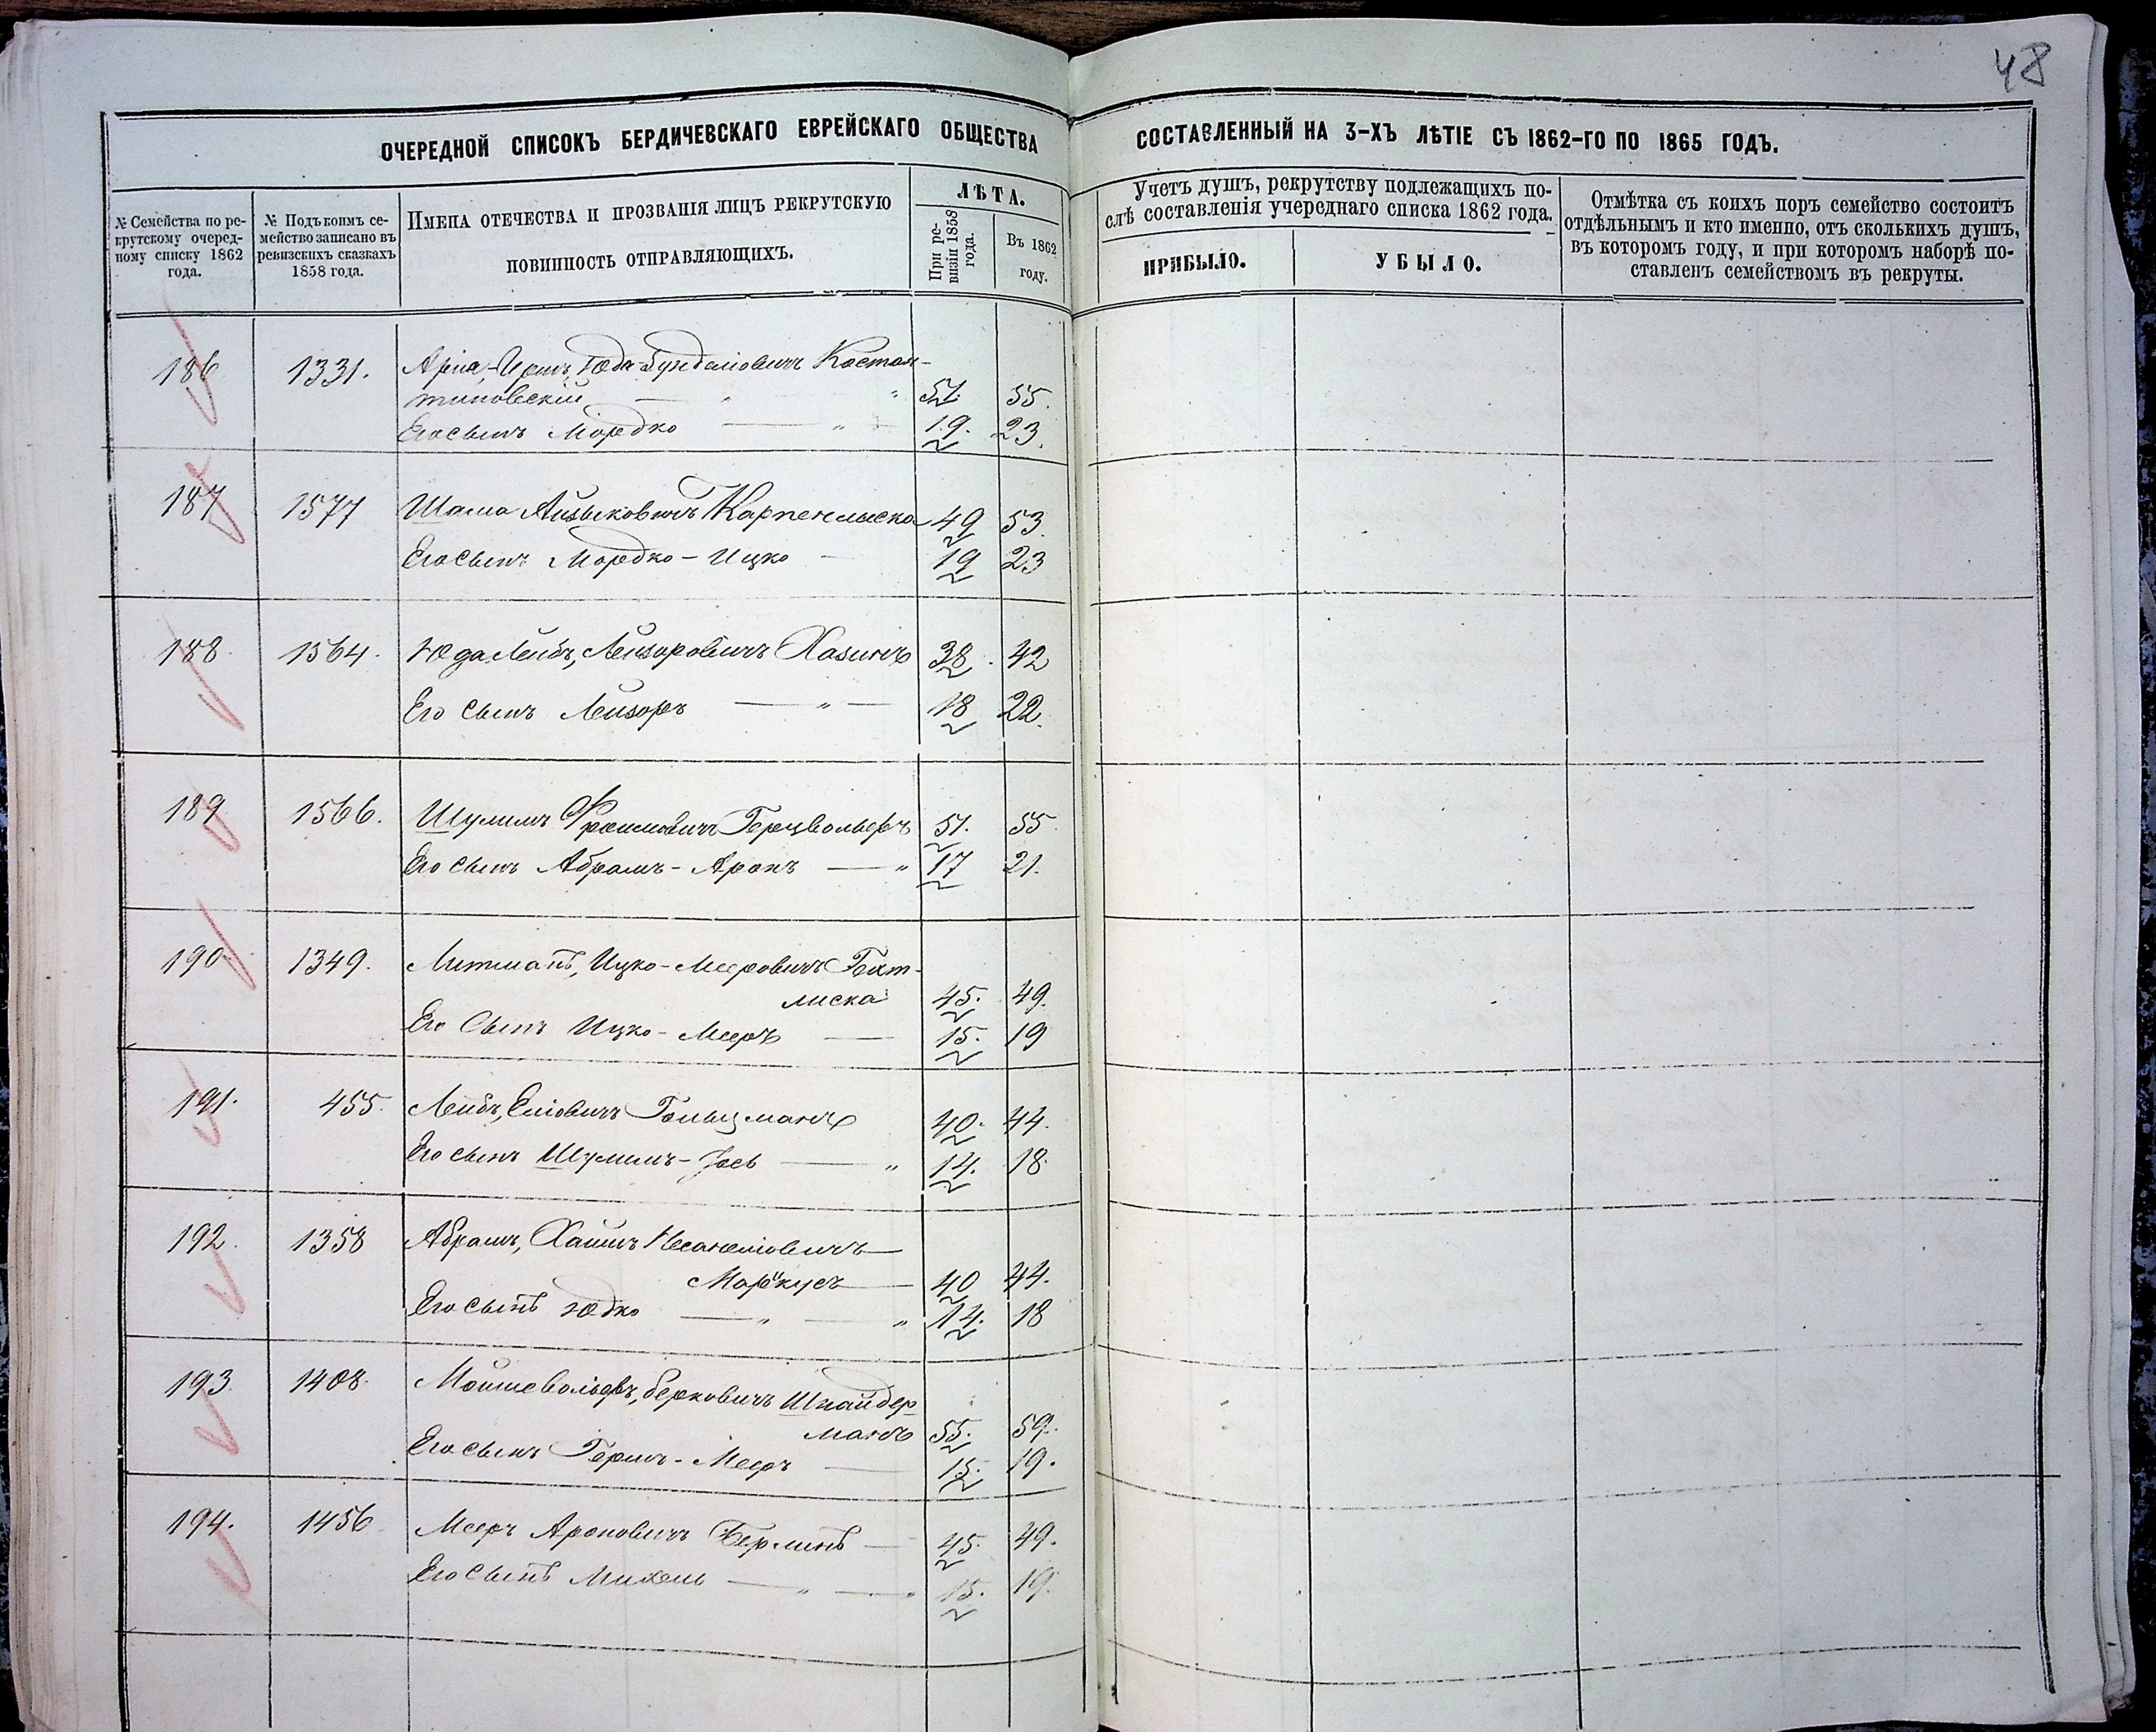 48
ОЧЕРЕДНОЙ СПИСОКЪ БЕРДИЧЕВСКАГО ЕВРЕЙСКАГО ОБЩЕСТВА СОСТАВЛЕННЫЙ НА 3-ХЪ ЛѢТІЕ СЪ 1862-ГО ПО 1865 ГОДЪ.
№ Семейства по ре-
крутскому очеред-
ному списку 1862
года.
№ Подъ коимъ се-
мейство записано въ
ревизскихъ сказкахъ
1858 года.
ИМЕНА ОТЕЧЕСТВА И ПРОЗВАНІЯ ЛИЦЪ РЕКРУТСКУЮ
ПОВИННОСТЬ ОТПРАВЛЯЮЩИХЪ.
ЛѢТА.
При ре-
визіи 1858
года.
Въ 1862
году.
Учетъ душъ, рекрутству подлежащихъ по-
слѣ составленія учереднаго списка 1862 года.
ПРИБЫЛО.
УБЫЛО.
Отмѣтка съ коихъ поръ семейство состоитъ
отдѣльнымъ и кто именно, отъ сколькихъ душъ,
въ котором году, и при котором наборѣ по-
ставленъ семействомъ въ рекруты.
186 1331. Костан-
тиновскій — " " 51. 55.
Его сынъ Мордко — " 19. 23.
187 1577 Шама Айзыковичъ 49 53.
Его сынъ Мордко-Ицко — 19 23
188. 1564. Юда Лейбъ, Лейзоровичъ Хазинъ 38. 42
Его сынъ Лейзоръ — " — 18 22.
189. 1566. Шулимъ Фроимовичъ Герцвольфъ 51. 55.
Его сынъ Абрамъ-Аронъ — " 17 21.
190. 1349. Литманъ, Ицко-Мееровичъ
45. 49.
Его Сынъ Ицко-Мееръ — 15. 19
191. 455. Лейбъ, Еліовичъ Гольцманъ 40. 44.
Его сынъ Шулимъ-Іось — " 14. 18.
192. 1358 Абрамъ, Хаимъ
Маркусъ — 40 44.
Его сынъ Юдко — " — " 14. 18
193. 1408. Мошко Вольфъ, Берковичъ Шнайдер
манъ 55. 59.
Его сынъ Гершъ-Мееръ — 15. 19.
194. 1456 Мееръ Ароновичъ Берлинъ — 45. 49.
Его сынъ Михель — " — " 15. 19.